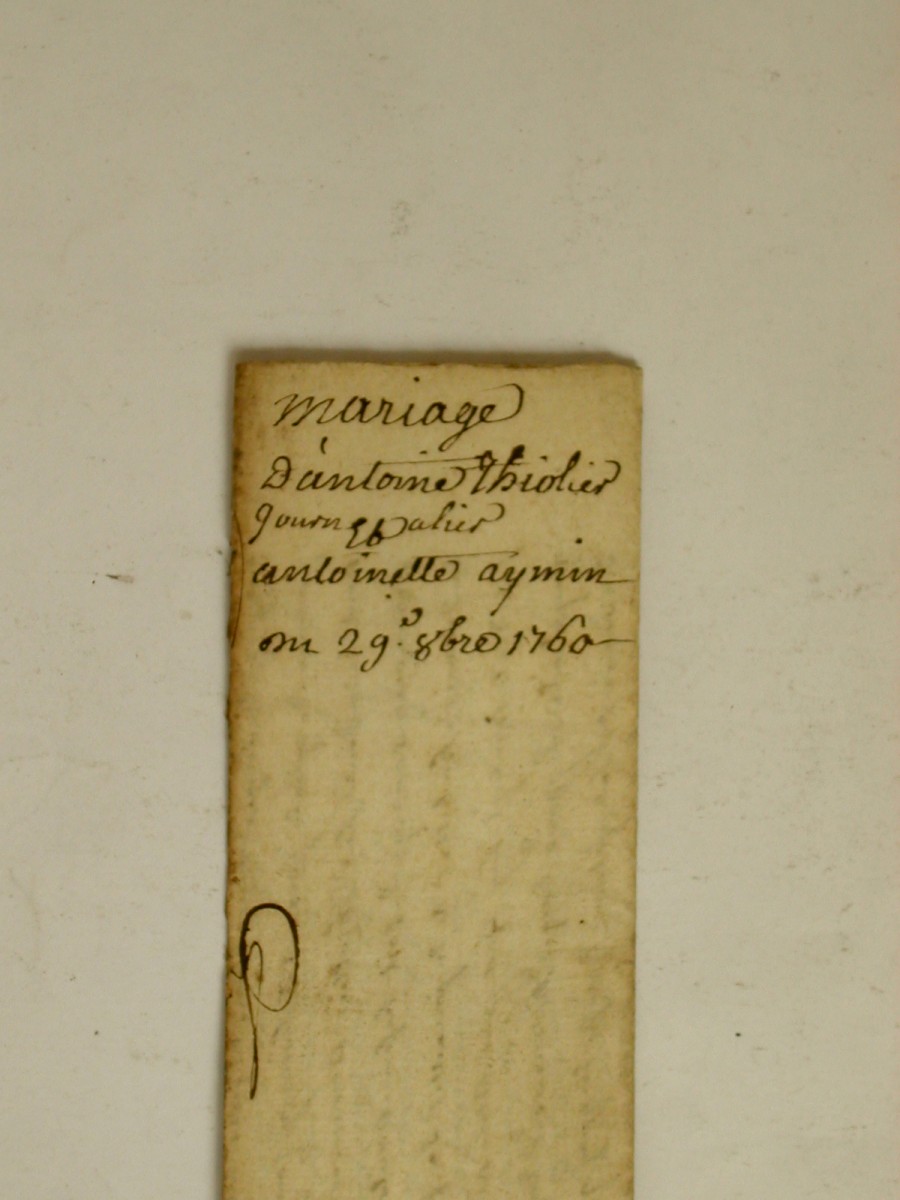 mariage
D'antoine Thiolier
Journalier
&
antoinette aymin
du 29e. 8bre 1760